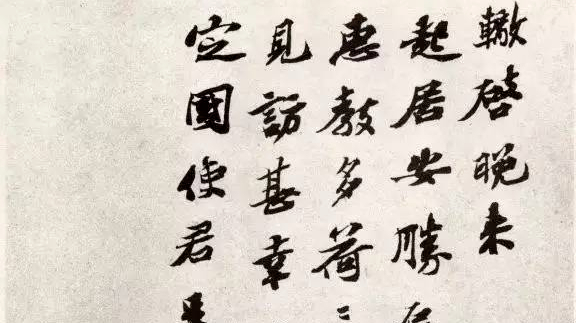 轍啓晚來
起居安勝
惠教多荷二
見訪甚幸
定國使君